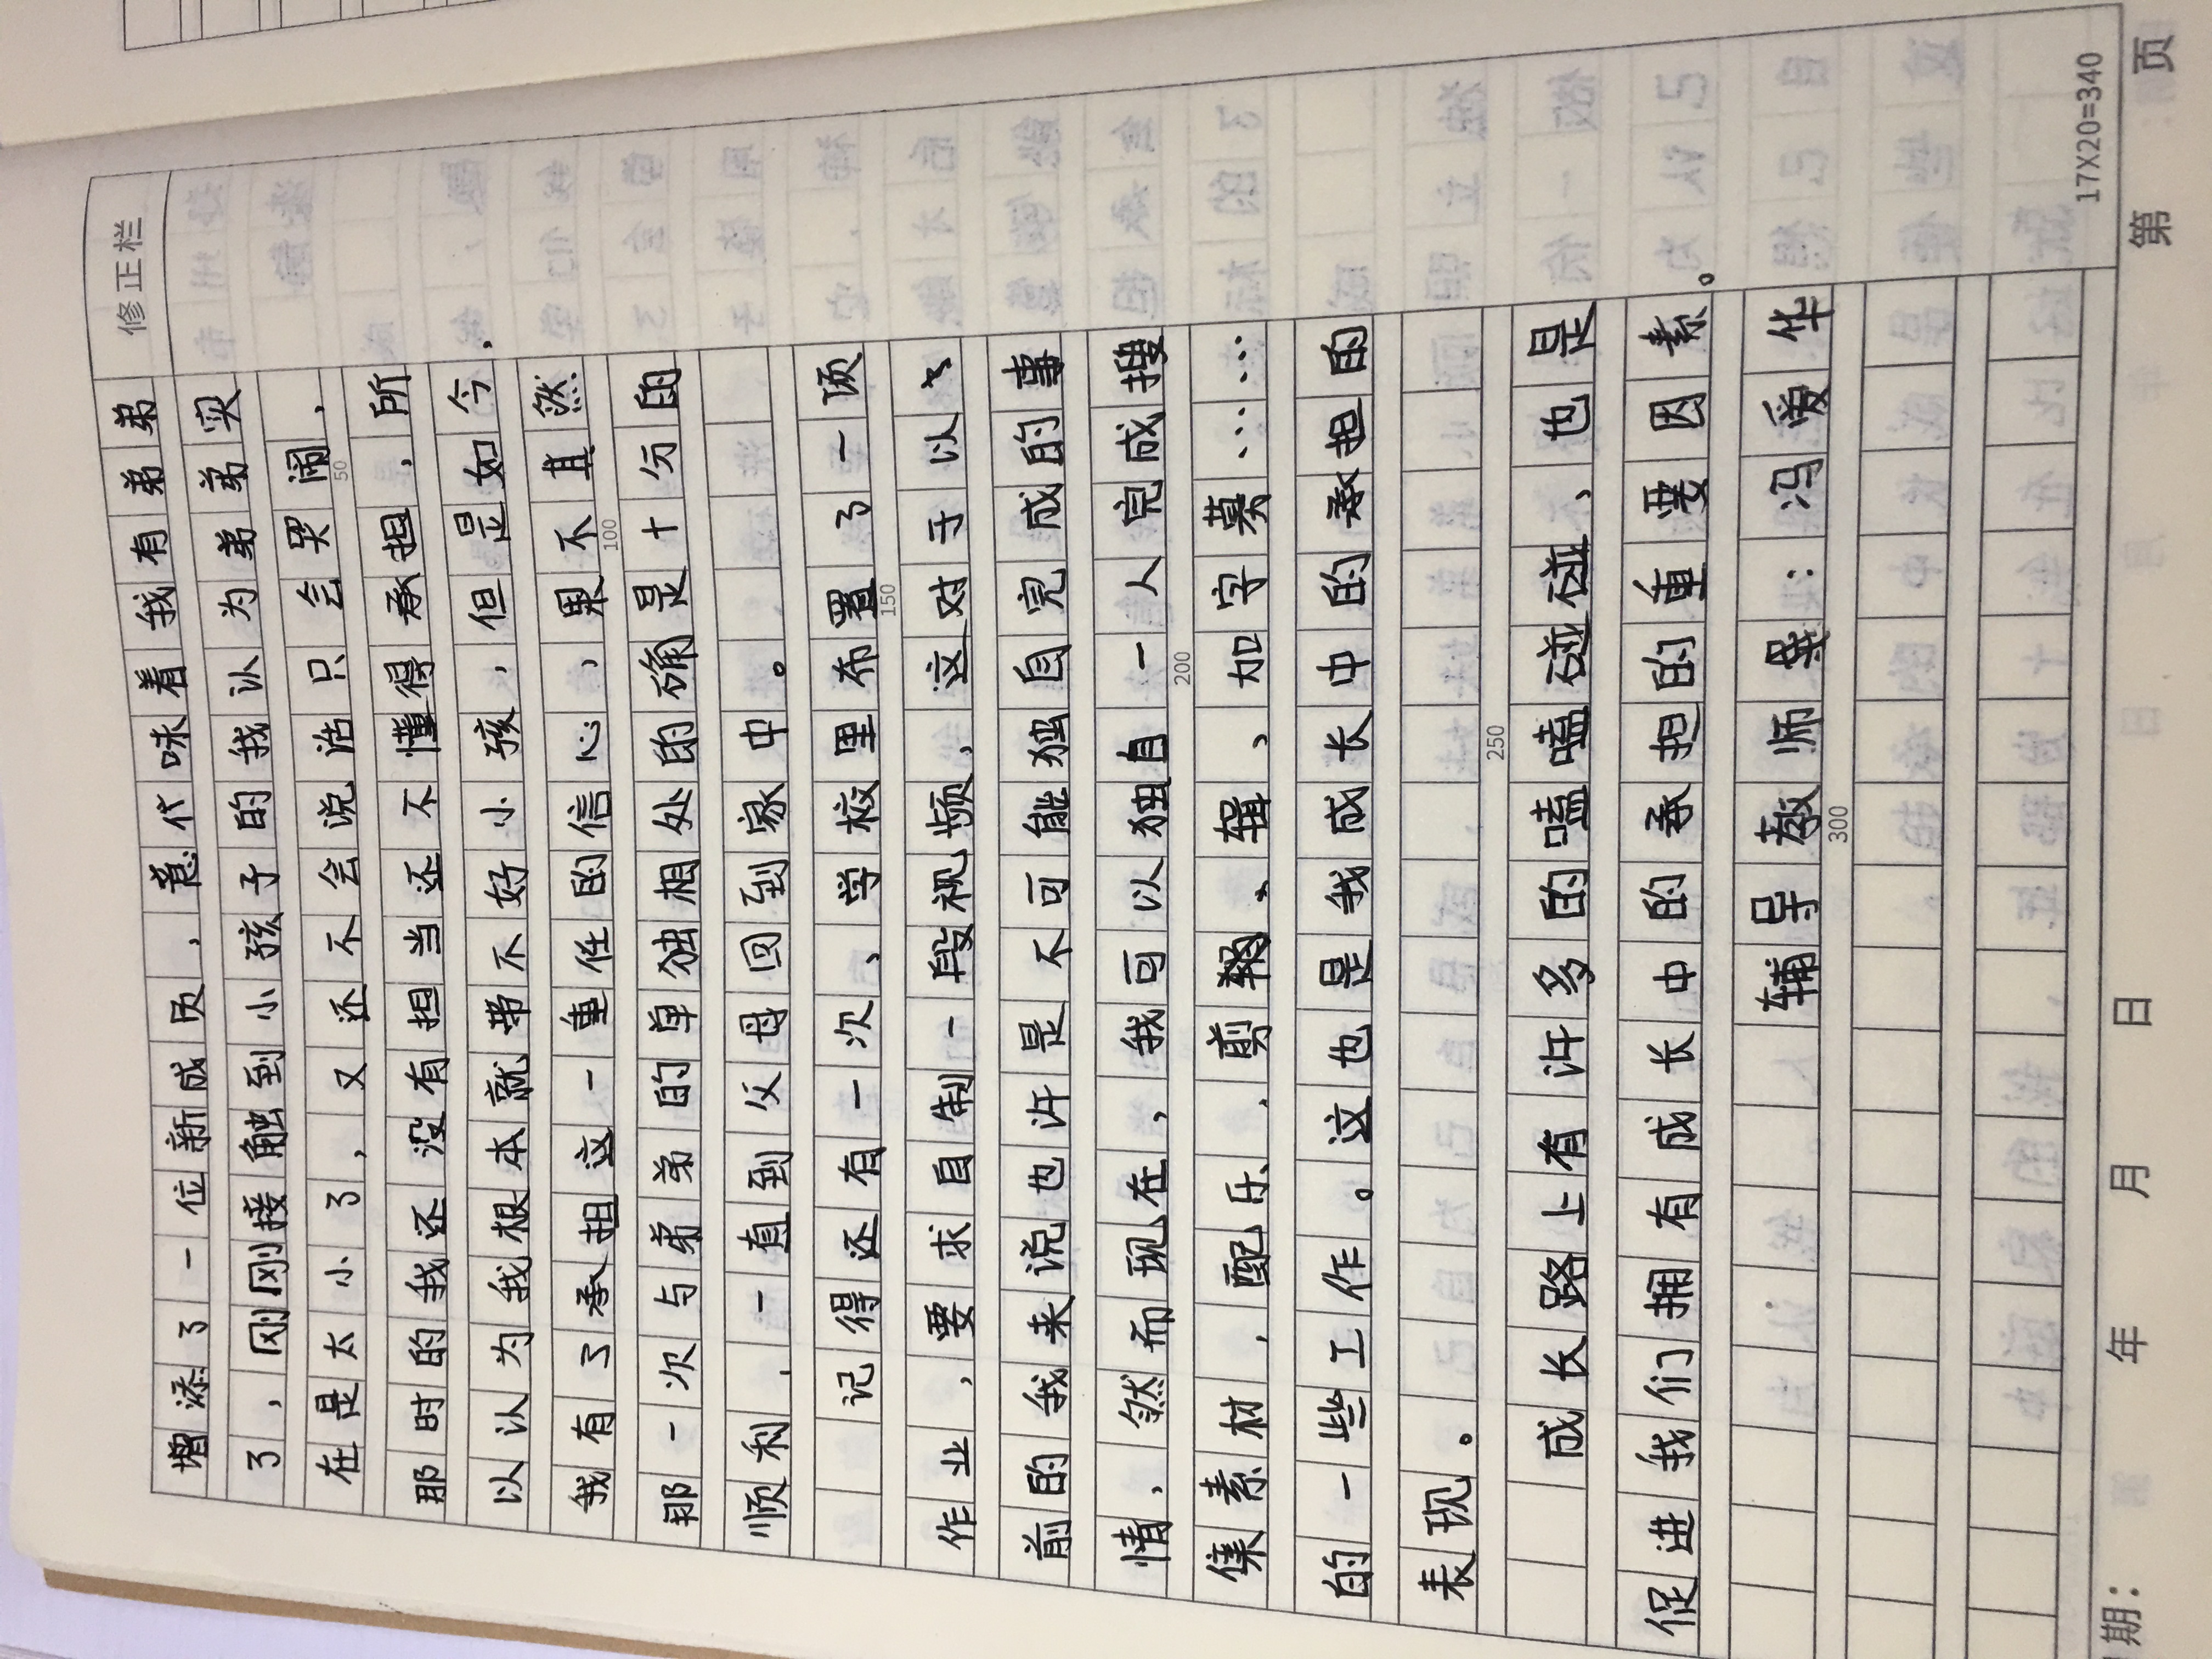 修正栏
增添了一位新成员，意代味着我有弟弟
了，刚刚接触到小孩子的我认为弟弟实
在是太小了，又还不会说话只会哭闹，
那时的我还没有担当还不懂得承担，所
以认为我根本就带不好小孩，但是如今，
我有了承担这一重任的信心，果不其然
那一次与弟弟的单独相处的确是十分的
顺利，一直到父母回到家中。
记得还有一次、学校里布置了一项
作业，要求自制一段视频，这对于以
前的我来说也许是不可能独自完成的事
情，然而现在，我可以独自一人完成搜
集素材，配乐，剪辑、加字幕……
的一些工作。这也是我成长中的承担的
表现。
成长路上有许多的嗑嗑碰碰、也是
促进我们拥有成长中的承担的重要因素。
辅导教师：冯爱华
50
100
150
200
250
300
17X20=340
期： 年 月 日 第 页